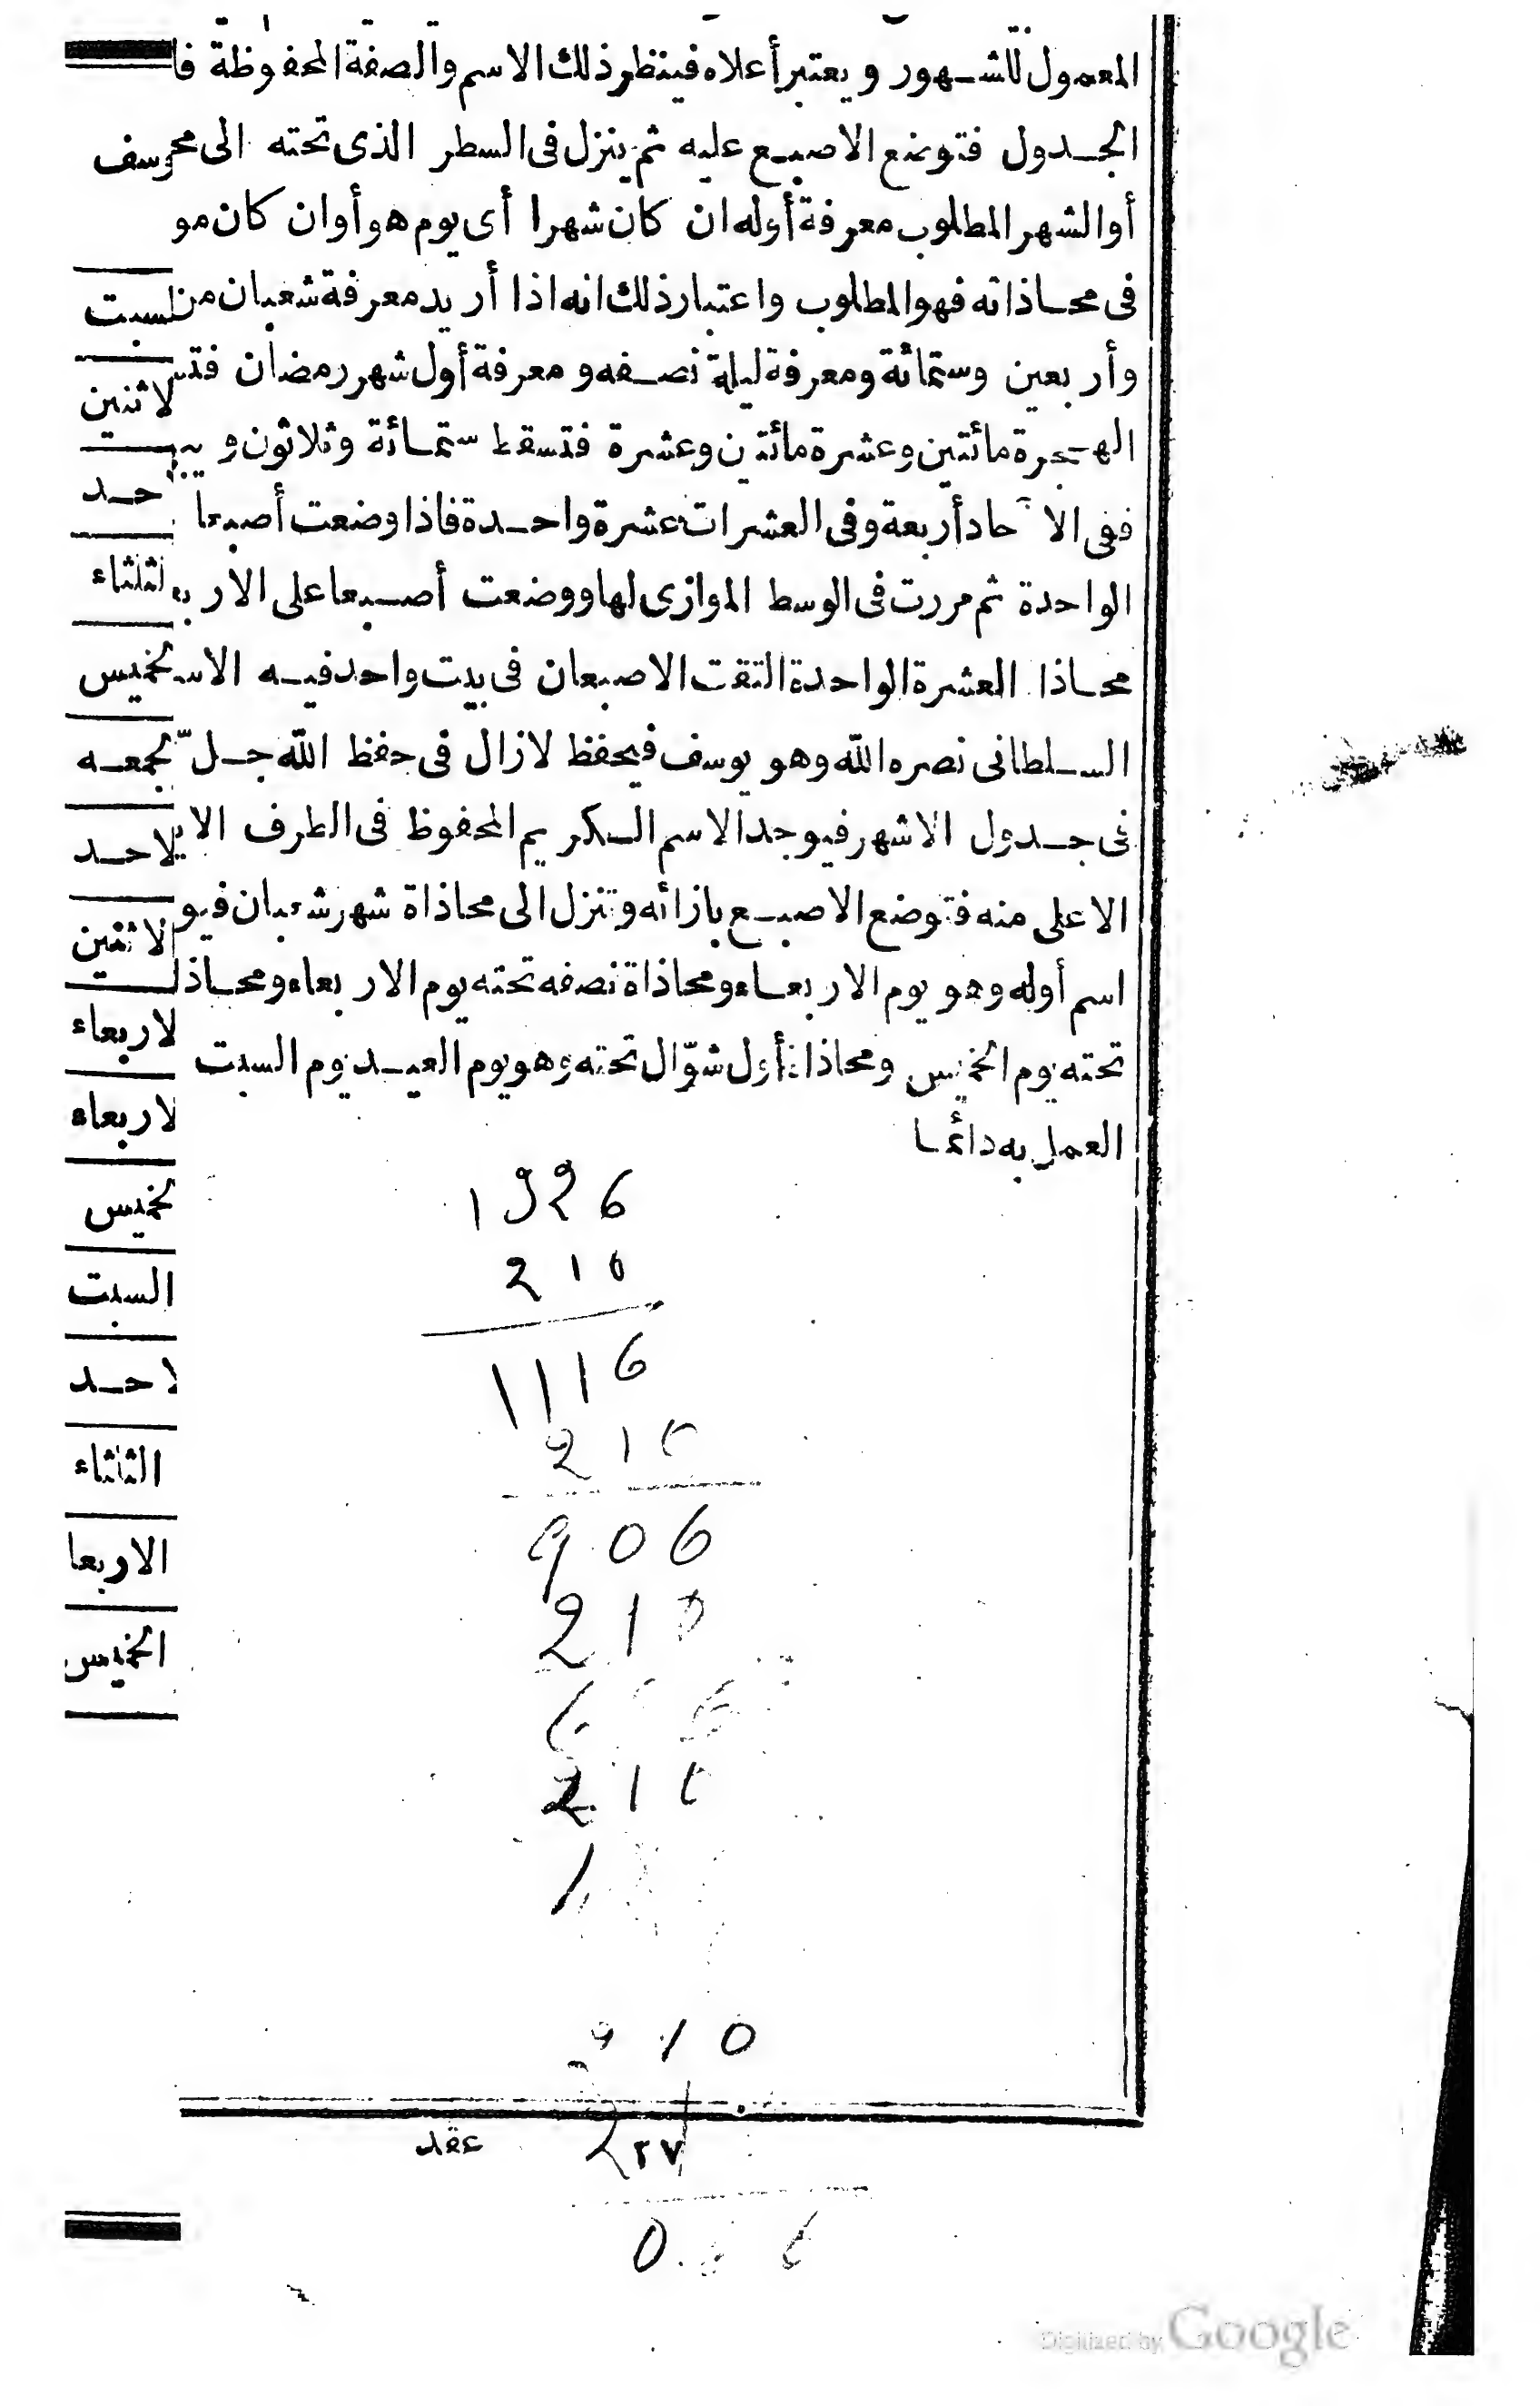 المعمول للشهور ويعتبر أعلاه فينظر ذلك الاسم والصفة المحفوظة فا
الجدول فتوضع الاصبع عليه ثم ينزل فى السطر الذى تحته الى مح
أو الشهر المطلوب معرفة أوله ان كان شهرا أى يوم هو أوان كان مو
فى محاذاته فهو المطلوب واعتبار ذلك انه اذا أريد معرفة شعبان من
وأربعين وستمائة ومعرفة ليلة نصفه ومعرفة أول شهر رمضان فتس
الهجرة مائتين وعشرة مائتين وعشرة فتسقط ستمائة وثلاثون و
ففى الآحاد أربعة وفى العشرات عشرة واحدة فاذا وضعت أصبعا
الواحدة ثم مررت فى الوسط الموازى لها ووضعت أصبعا على الارب
محاذا العشرة الواحدة التقت الاصبعان فى بيت واحد فيه الاس
السلطانى نصره الله وهو يوسف فيحفظ لازال فى حفظ الله جل
فى جدول الاشهر فيوجد الاسم الكريم المحفوظ فى الطرف الاي
الاعلى منه فتوضع الاصبع بازائه وتنزل الى محاذاة شهر شعبان فيو
اسم أوله وهو يوم الاربعاء ومحاذاة نصفه تحته يوم الاربعاء ومحاذ
تحته يوم الخميس ومحاذاة أول شوّال تحته وهو يوم العيد يوم السبت
العمل به دائما
وسف
لسبت
لاثنين
حد
لثلثاء
لخميس
لجمعه
لاحد
الاثنين
لاربعاء
لاربعاء
لخميس
السبت
لاحد
الثلثاء
الاربعا
الخميس
1326
210
1116
210
906
210
210
210
٢٧
عقد
Digitized by Google